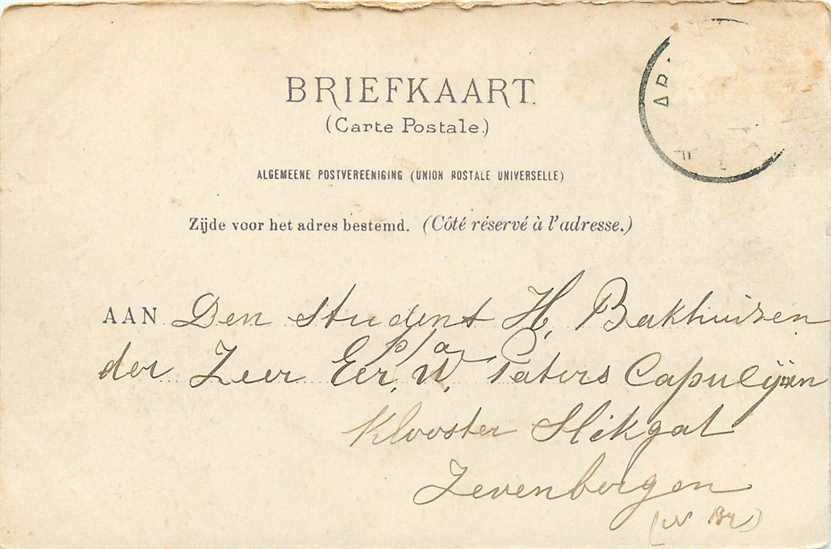 BRIEFKAART.
(Carte Postale.)
ALGEMEENE POSTVEREENIGING (UNION POSTALE UNIVERSELLE)
Zijde voor het adres bestemd. (Côté réservé à l'adresse.)
AAN Den student H, Bakhuizen
p/a
der Zeer Eer. W. Paters Capucijnen
Klooster Slikgat
Zevenbergen
(N Br)